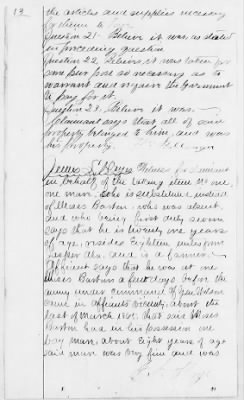 13
the articles and supplies necessary
Question 21. Believe it was as stated
in preceding question
Question 22. Believe it was taken for
some purpose so necessary as to
warrant and require the Government
to pay for it.
Question 23. Believe it was.
Claimant says that all of said
property belonged to him, and was
his property.
Witness for Claimant
in behalf of the taking item No one,
one man. who is substituted instead
of Moses Barton, who was absent,
and who being first duly sworn
says that he is twenty one years
of age, resides Eighteen miles from
Jasper Ala. and is a farmer.
Affiant says that he was at
Moses Bartons a few days before the
army under command of Gen Wilson
came in affiants vicinity about the
last of March 1865. that said Moses
Barton had in his possession one
bay mare, about Eight years of age
said mare was very fine and was